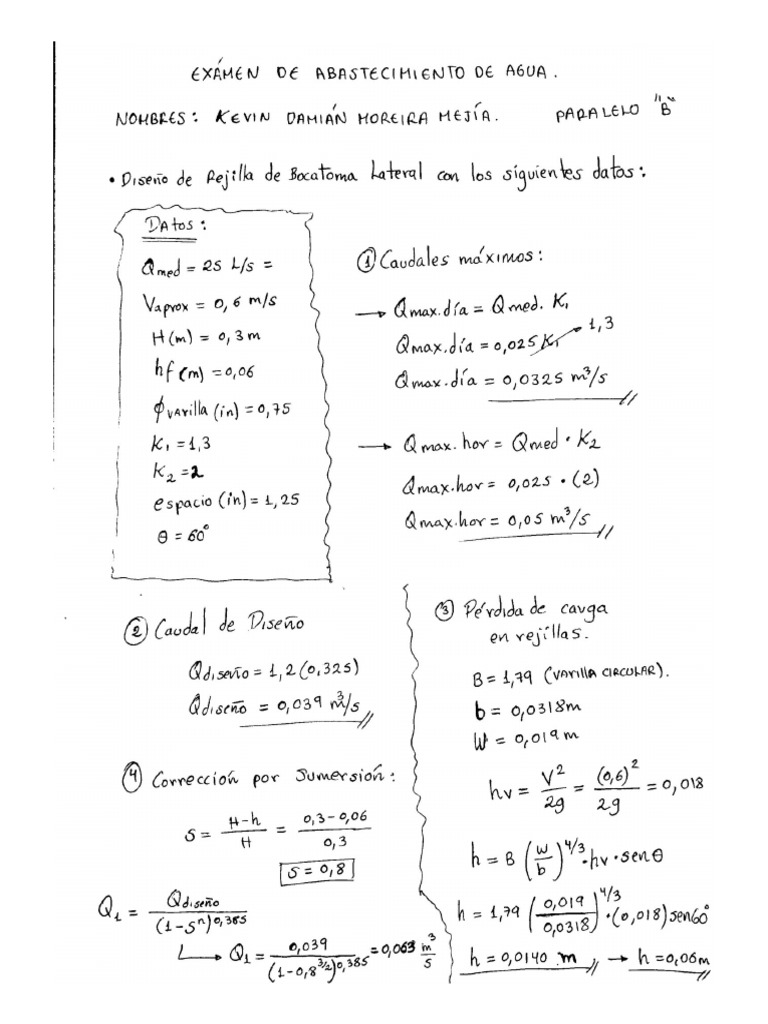 EXÁMEN DE ABASTECIMIENTO DE AGUA.
NOMBRES: KEVIN DAMIÁN MOREIRA MEJÍA. PARALELO "B"
• Diseño de Rejilla de Bocatoma Lateral con los siguientes datos:
Datos:
Qmed = 25 L/s =
Vaprox = 0,6 m/s
H(m) = 0,3 m
hf(m) = 0,06
ϕvarilla (in) = 0,75
K₁ = 1,3
K₂ = 2
espacio (in) = 1,25
θ = 60°
① Caudales máximos:
→ Qmax.día = Qmed. K₁
Qmax.día = 0,025 K₁ 1,3
Qmax.día = 0,0325 m³/s
→ Qmax.hor = Qmed • K₂
Qmax.hor = 0,025 • (2)
Qmax.hor = 0,05 m³/s
② Caudal de Diseño
Qdiseño = 1,2 (0,325)
Qdiseño = 0,039 m³/s
③ Pérdida de carga
en rejillas.
B = 1,79 (VARILLA CIRCULAR).
b = 0,0318m
W = 0,019 m
hv = V²/2g = (0,6)²/2g = 0,018
h = B (w/b)^4/3 • hv • senθ
h = 1,79 (0,019/0,0318)^4/3 • (0,018) sen60°
h = 0,0140 m → h = 0,06m
④ Corrección por Sumersión:
S = H-h/H = 0,3-0,06/0,3
S = 0,8
Q₁ = Qdiseño/(1-Sⁿ)^0,385
→ Q₁ = 0,039/(1-0,8^3/2)^0,385 = 0,063 m³/s